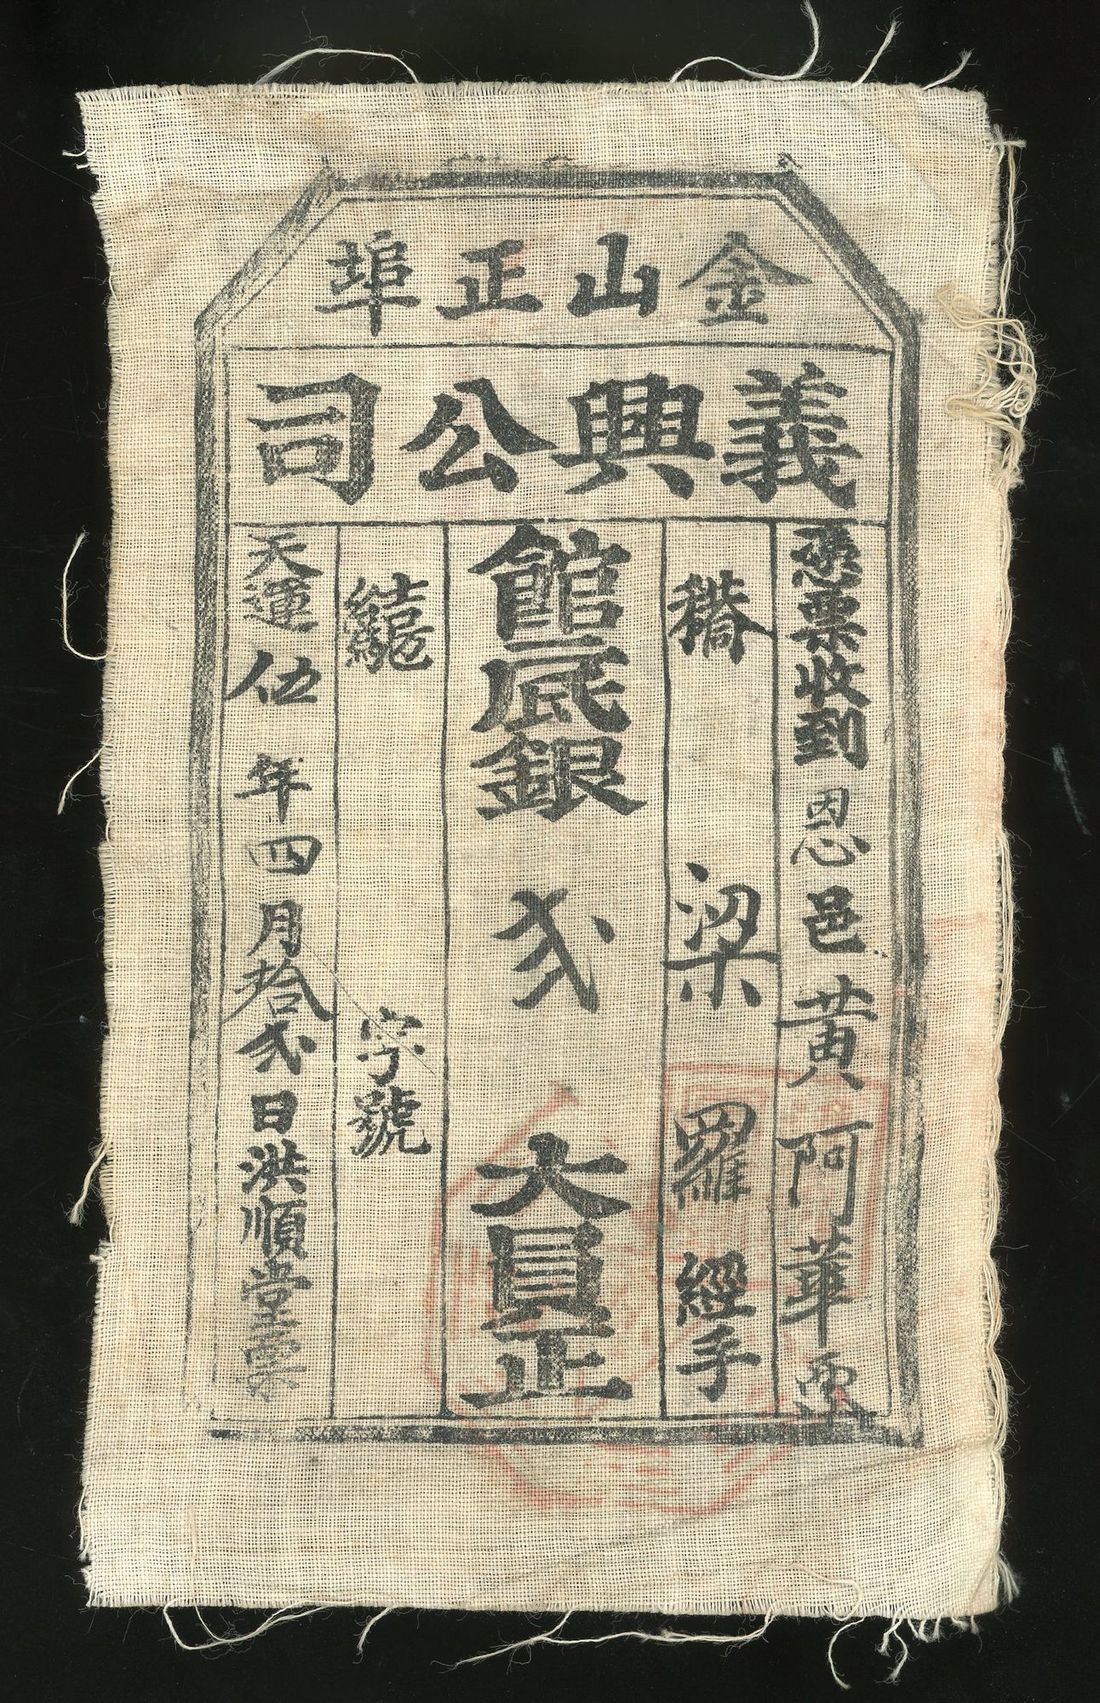 金山正埠
義興公司
憑票收到恩邑黃阿華
梁羅經手
館底銀弍大員正
字號
天運伍年四月拾弍日洪順堂票